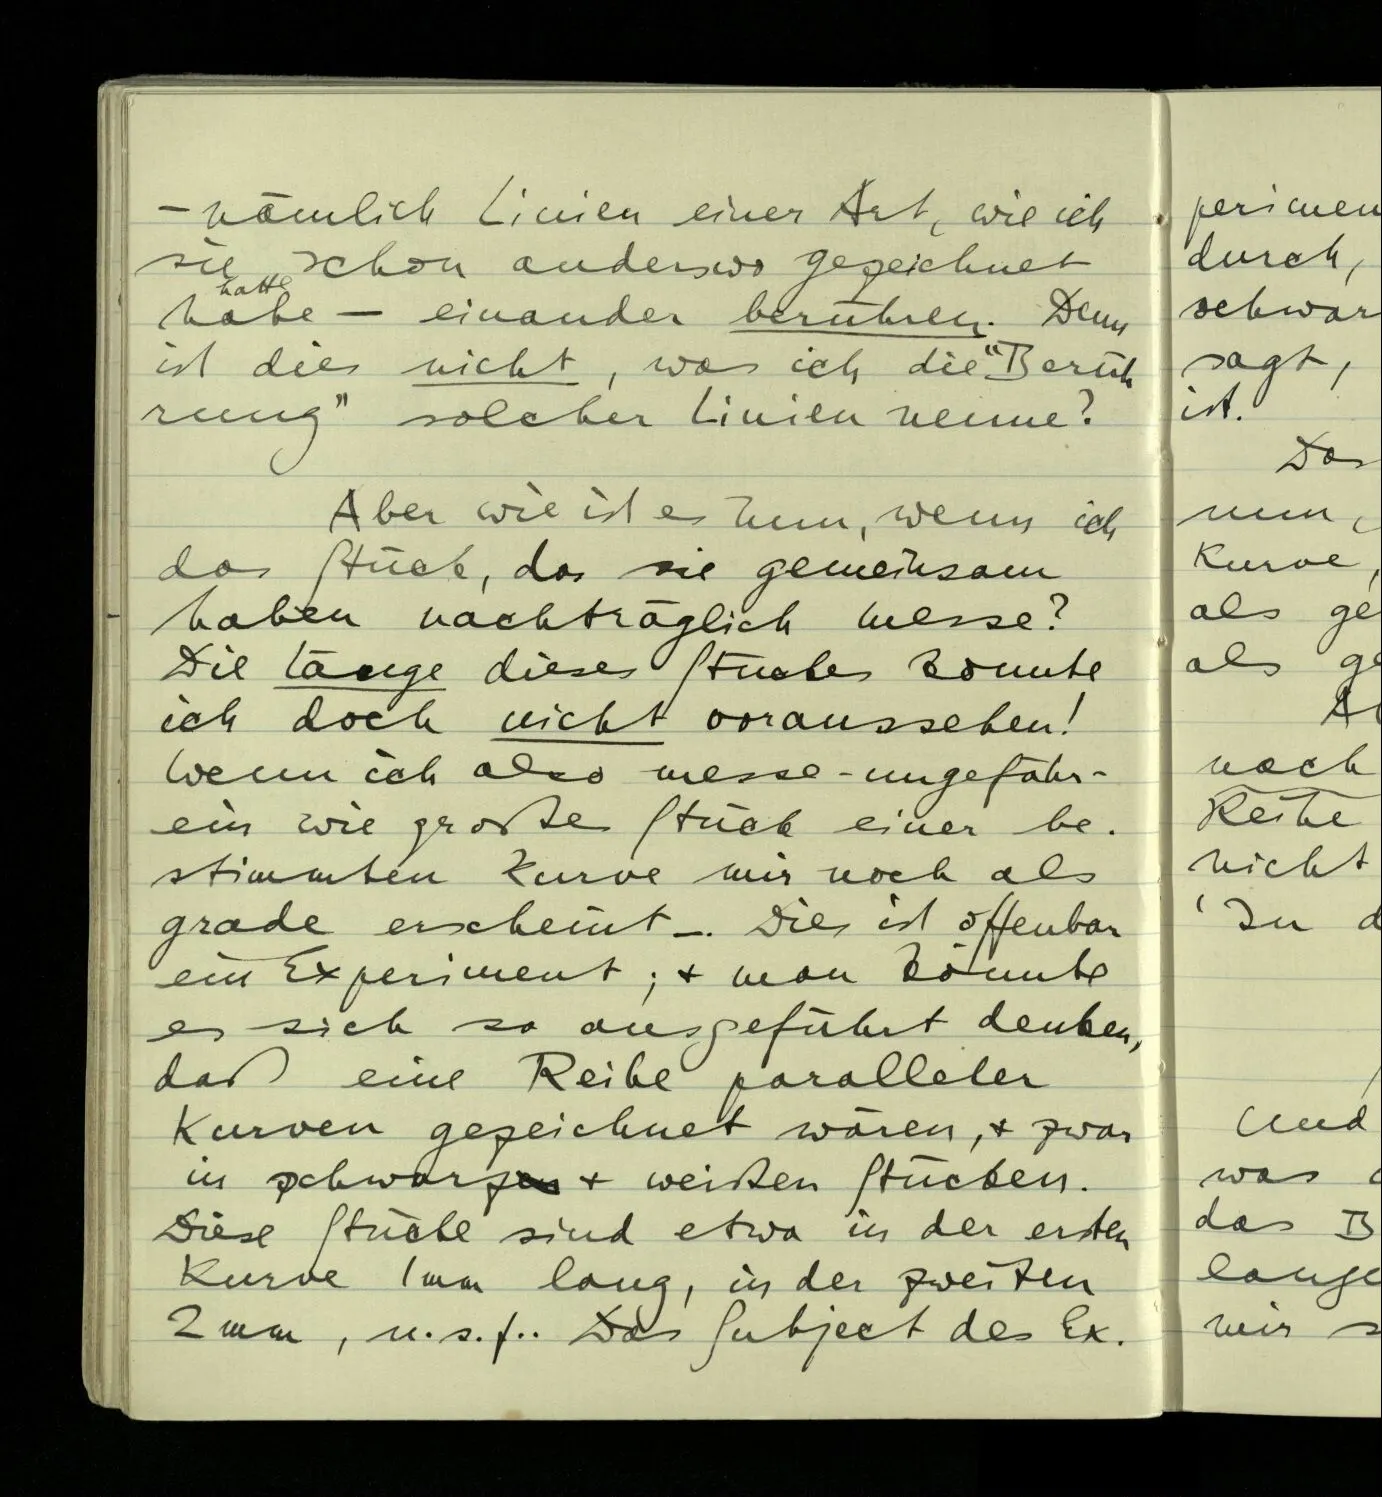 – nämlich Linien einer Art, wie ich
sie schon anderswo gezeichnet
hatte
habe – einander berühren. Denn
ist dies nicht, was ich die "Berüh
rung" solcher Linien nenne?
Aber wie ist es nun, wenn ich
das Stück, das sie gemeinsam
haben nachträglich messe?
Die Länge dieses Stückes konnte
ich doch nicht voraussehen!
Wenn ich also messe – ungefähr –
ein wie großes Stück einer be-
stimmten Kurve mir noch als
grade erscheint –. Dies ist offenbar
ein Experiment; + man könnte
es sich so ausgeführt denken,
daß eine Reihe paralleler
Kurven gezeichnet wären, + zwar
in schwarzen + weißen Stücken.
Diese Stücke sind etwa in der ersten
Kurve 1mm lang, in der zweiten
2mm, u.s.f.. Das Subject des Ex-
perimen
durch,
schwar
sagt,
ist.
Das
nun,
Kurve,
als ge
als ge
noch
Reihe
nicht
'In d
Und
was
das B
lange
mir s